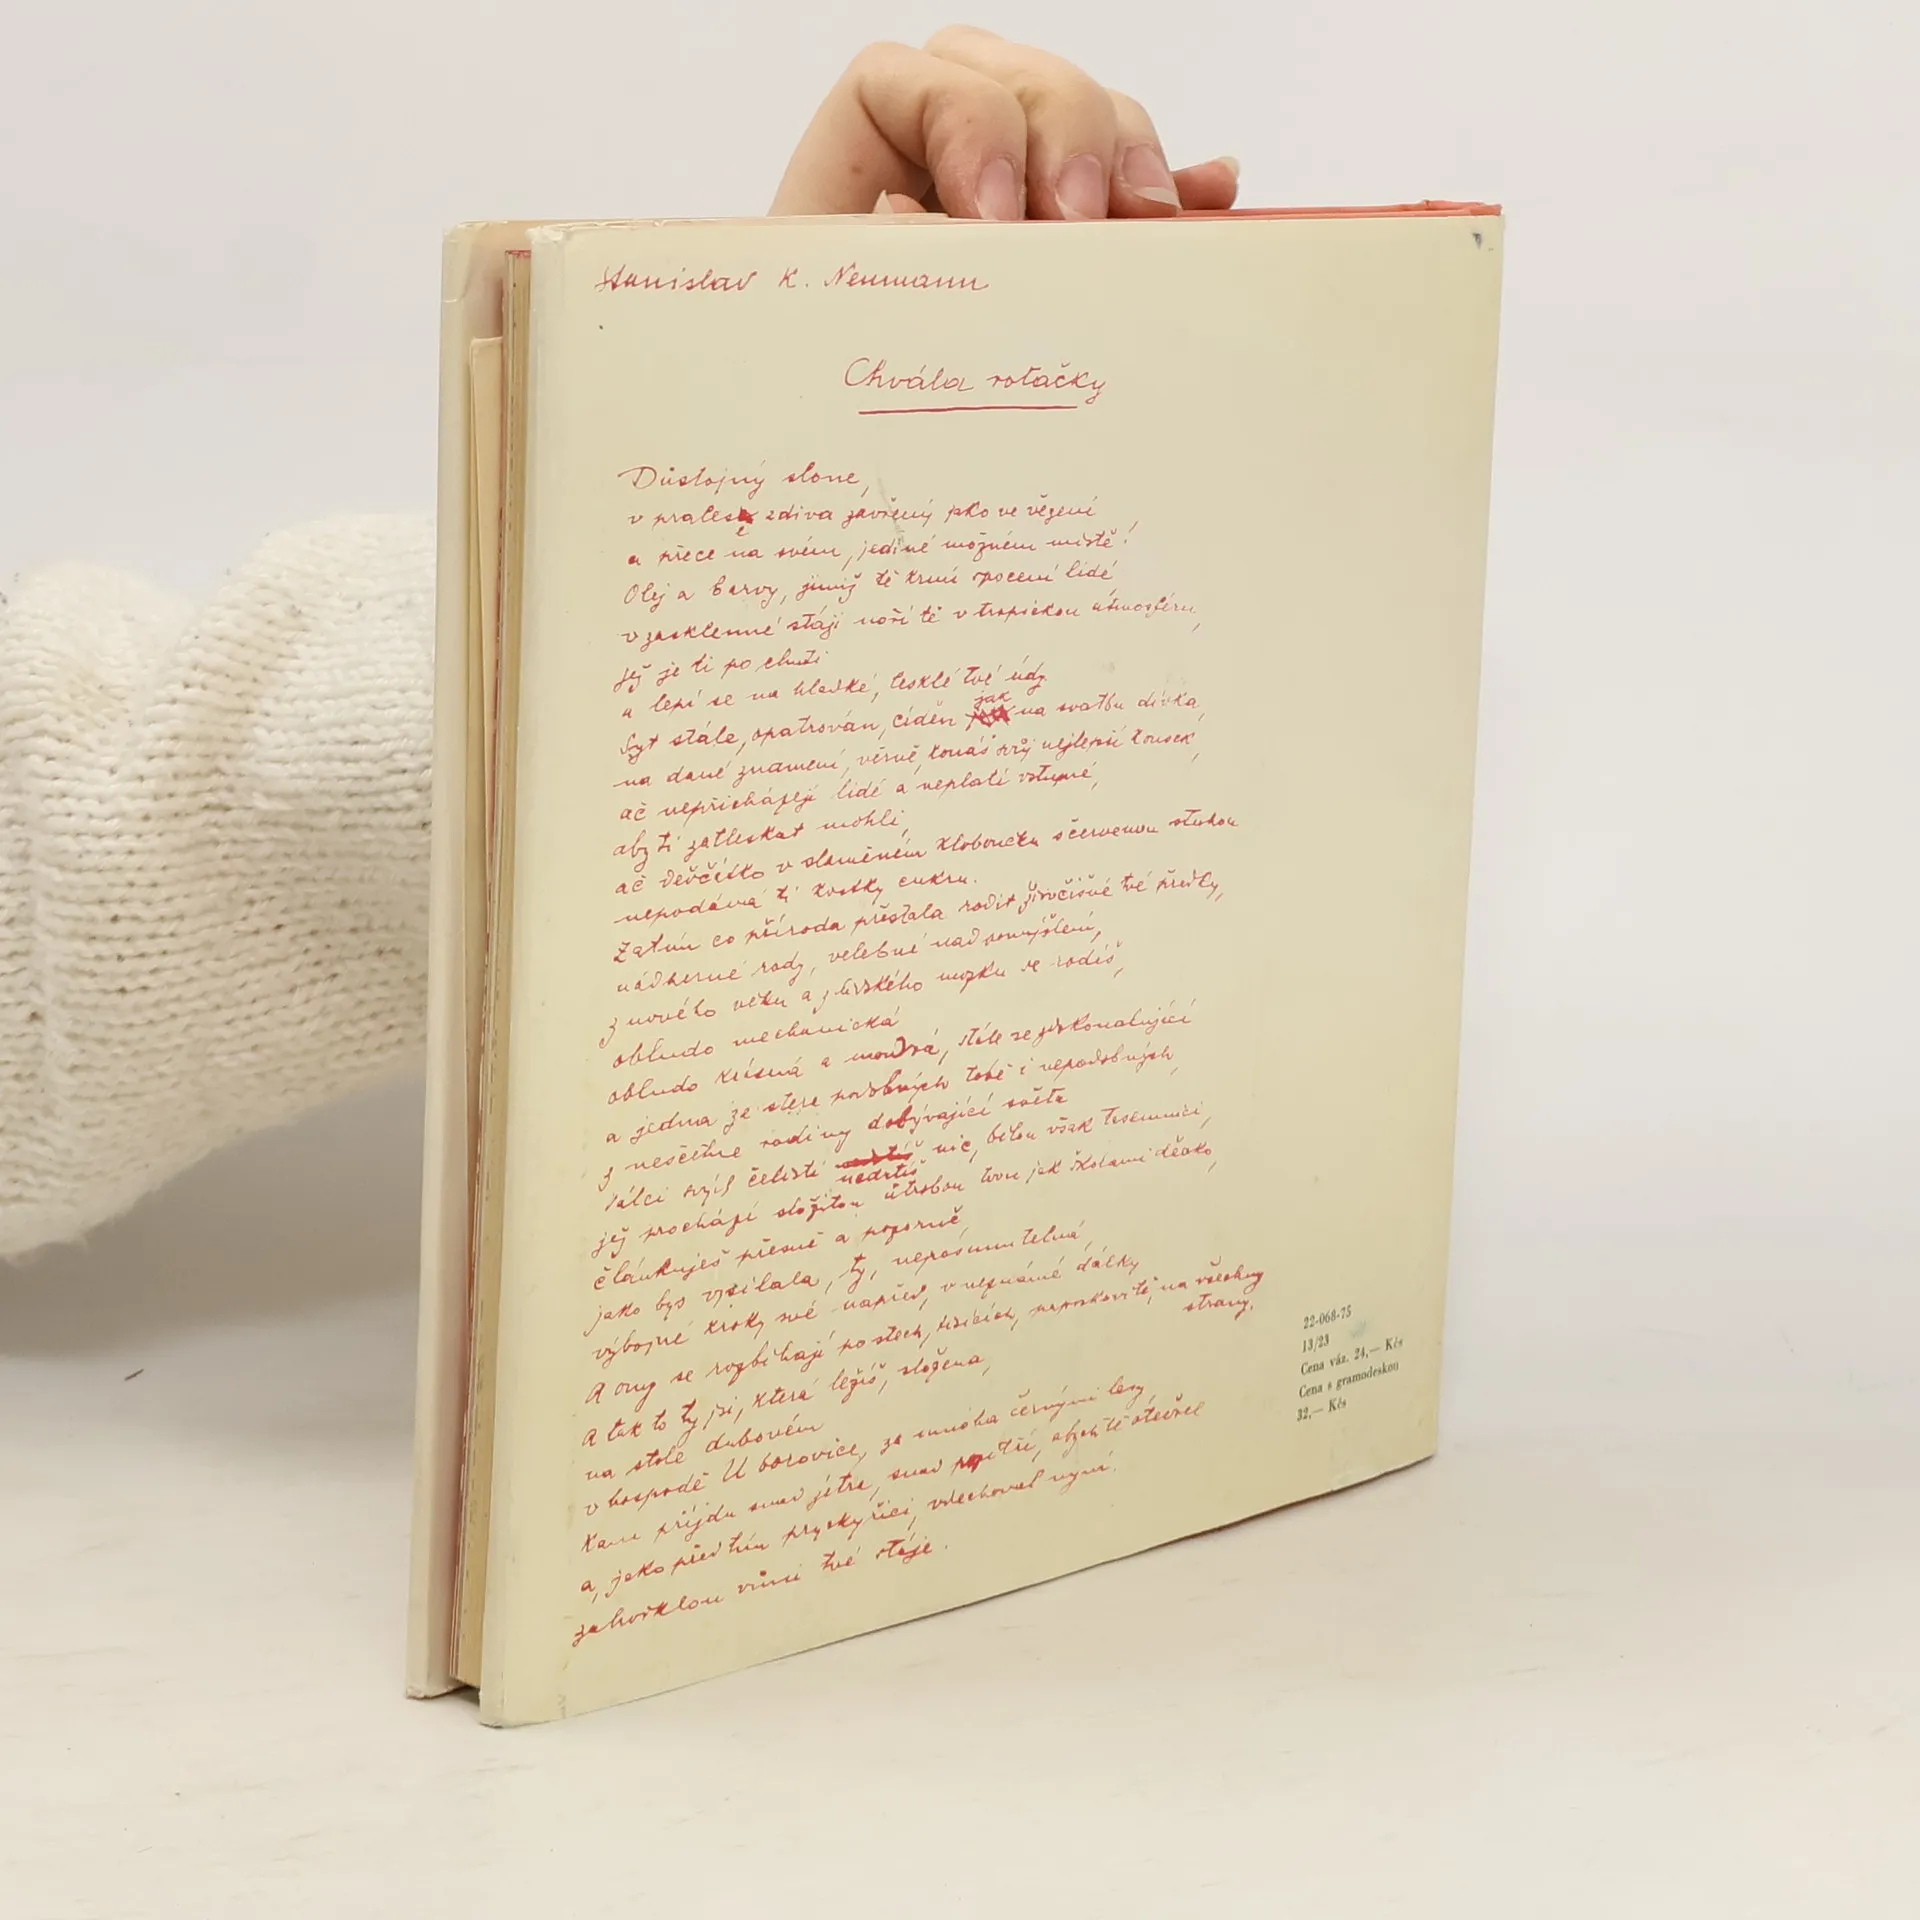 Stanislav K. Neumann
Chvála rotačky
Důstojný slone,
v pralese zdiva zavřený jako ve vězení
a přece na svém, jediné možném místě!
Olej a barvy, jimiž tě krmí zpocení lidé
v zasklenné stáji noří tě v tropickou atmosféru,
jež je ti po chuti
a lepí se na hladké, lesklé tvé údy.
Syt stále, opatrován, cíděn jak na svatbu dívka,
na dané znamení, věrně, konáš svůj nejlepší kousek,
ač nepřicházejí lidé a neplatí vstupné,
aby ti zatleskat mohli,
ač děvčátko v slaměném kloboučku s červenou stuhou
nepodává ti kostky cukru.
Zatím co příroda přestala rodit živočišné tvé předky,
nádherné rody, velebné nad pomyšlení,
z nového věku a z lidského mozku se rodíš,
obludo mechanická
obludo krásná a moudrá, stále se zdokonalující
a jedna ze stera podobných tobě i nepodobných,
z nesčetné rodiny dobývající světa
Válci svých čelistí nedrtíš nic, bělou však tisennici,
jež prochází složitou útrobou tvou jak školami děcko,
článkuješ přesně a pozorně,
jako bys vysílala, ty, neprosmutelná,
výbojné kroky své napřed, v neznámé dálky
A ony se rozbíhají po stech, tisících, paprskovitě, na všechny
strany.
A tak to ty jsi, která ležíš, složena,
na stole dubovém
v hospodě U borovice, za mnoha černými lesy,
kam přijdu snad zítra, snad pozítří, abych tě otevřel
a, jako předtím pryskyřici, vdechoval nyní
zahořklou vůni tvé stáje.
22-068-75
13/23
Cena váz. 24,— Kčs
Cena s gramodeskou
32,— Kčs